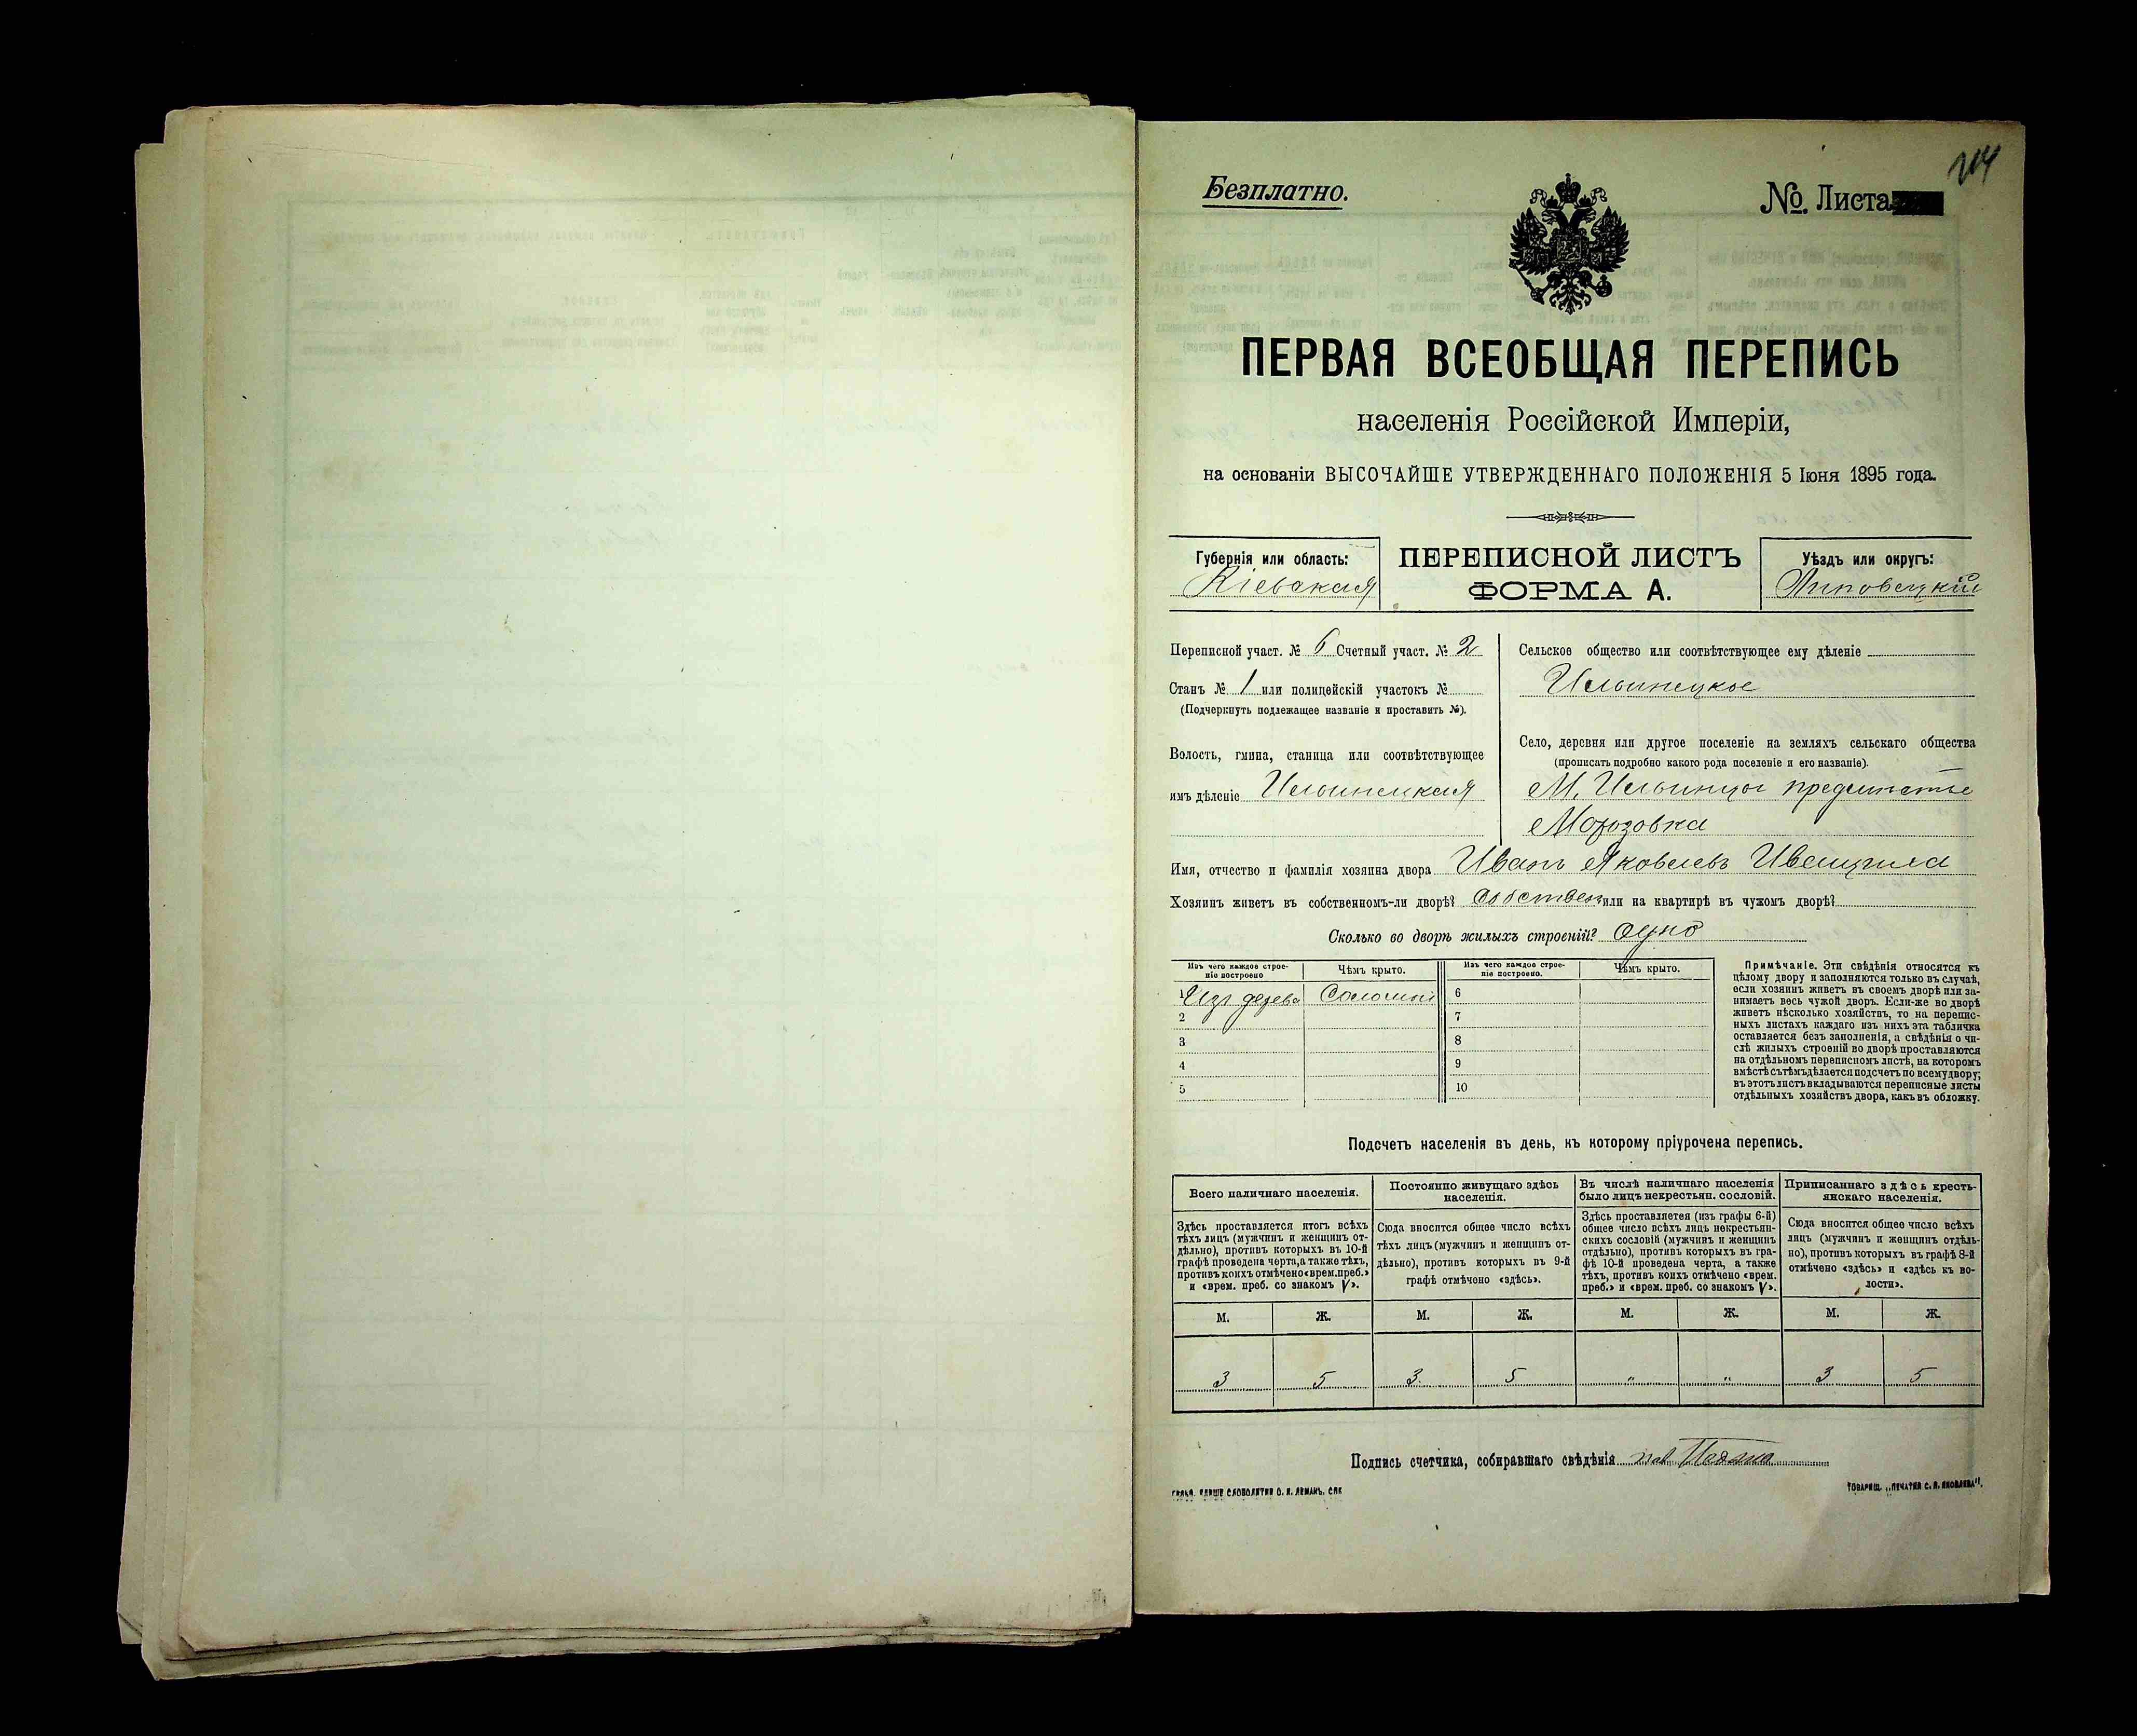 Безплатно.
№ Листа
ПЕРВАЯ ВСЕОБЩАЯ ПЕРЕПИСЬ
населенія Россійской Имперіи,
на основаніи ВЫСОЧАЙШЕ УТВЕРЖДЕННАГО ПОЛОЖЕНІЯ 5 Іюня 1895 года.
Губернія или область:
Кіевская
ПЕРЕПИСНОЙ ЛИСТЪ
ФОРМА А.
Уѣздъ или округъ:
Липовецкій
Переписной участ. № 6 Счетный участ. № 2
Станъ № 1 или полицейскій участокъ №
(Подчеркнуть подлежащее названіе и проставить №).
Волость, гмина, станица или соотвѣтствующее
имъ дѣленіе Ильинецкая
Сельское общество или соотвѣтствующее ему дѣленіе
Ильинецкое
Село, деревня или другое поселеніе на земляхъ сельскаго общества
(прописать подробно какого рода поселеніе и его названіе).
М. Ильинцы предмѣстье
Морозовка
Имя, отчество и фамилія хозяина двора Иванъ Яковлевъ
Хозяинъ живетъ въ собственномъ-ли дворѣ? Собствен или на квартирѣ въ чужомъ дворѣ?
Сколько во дворѣ жилыхъ строеній? Одно
Изъ чего каждое строе-
ніе построено
Чѣмъ крыто.
Изъ чего каждое строе-
ніе построено.
Чѣмъ крыто.
1 Изъ дерева Соломой 6
2 7
3 8
4 9
5 10
Примѣчаніе. Эти свѣдѣнія относятся къ
цѣлому двору и заполняются только въ случаѣ,
если хозяинъ живетъ въ своемъ дворѣ или за-
нимаетъ весь чужой дворъ. Если-же во дворѣ
живетъ нѣсколько хозяйствъ, то на перепис-
ныхъ листахъ каждаго изъ нихъ эта табличка
оставляется безъ заполненія, а свѣдѣнія о чи-
слѣ жилыхъ строеній во дворѣ проставляются
на отдѣльномъ переписномъ листѣ, на которомъ
вмѣстѣ съ тѣмъ дѣлается подсчетъ по всему двору;
въ этотъ листъ вкладываются переписные листы
отдѣльныхъ хозяйствъ двора, какъ въ обложку.
Подсчетъ населенія въ день, къ которому пріурочена перепись.
Всего наличнаго населенія.
Постоянно живущаго здѣсь
населенія.
Въ числѣ наличнаго населенія
было лицъ некрестьян. сословій.
Приписаннаго здѣсь кресть-
янскаго населенія.
Здѣсь проставляется итогъ всѣхъ
тѣхъ лицъ (мужчинъ и женщинъ от-
дѣльно), противъ которыхъ въ 10-й
графѣ проведена черта, а также тѣхъ,
противъ коихъ отмѣчено «врем. преб.»
и «врем. преб. со знакомъ V».
Сюда вносится общее число всѣхъ
тѣхъ лицъ (мужчинъ и женщинъ от-
дѣльно), противъ которыхъ въ 9-й
графѣ отмѣчено «здѣсь».
Здѣсь проставляется (изъ графы 6-й)
общее число всѣхъ лицъ некрестьян-
скихъ сословій (мужчинъ и женщинъ
отдѣльно), противъ которыхъ въ гра-
фѣ 10-й проведена черта, а также
тѣхъ, противъ коихъ отмѣчено «врем.
преб.» и «врем. преб. со знакомъ V».
Сюда вносится общее число всѣхъ
лицъ (мужчинъ и женщинъ отдѣль-
но), противъ которыхъ въ графѣ 8-й
отмѣчено «здѣсь» и «здѣсь къ во-
лости».
М. Ж. М. Ж. М. Ж. М. Ж.
3 5 3 5 " " 3 5
Подпись счетчика, собиравшаго свѣдѣнія
ТОВАРИЩ. „ПЕЧАТНЯ С. П. ЯКОВЛЕВА".